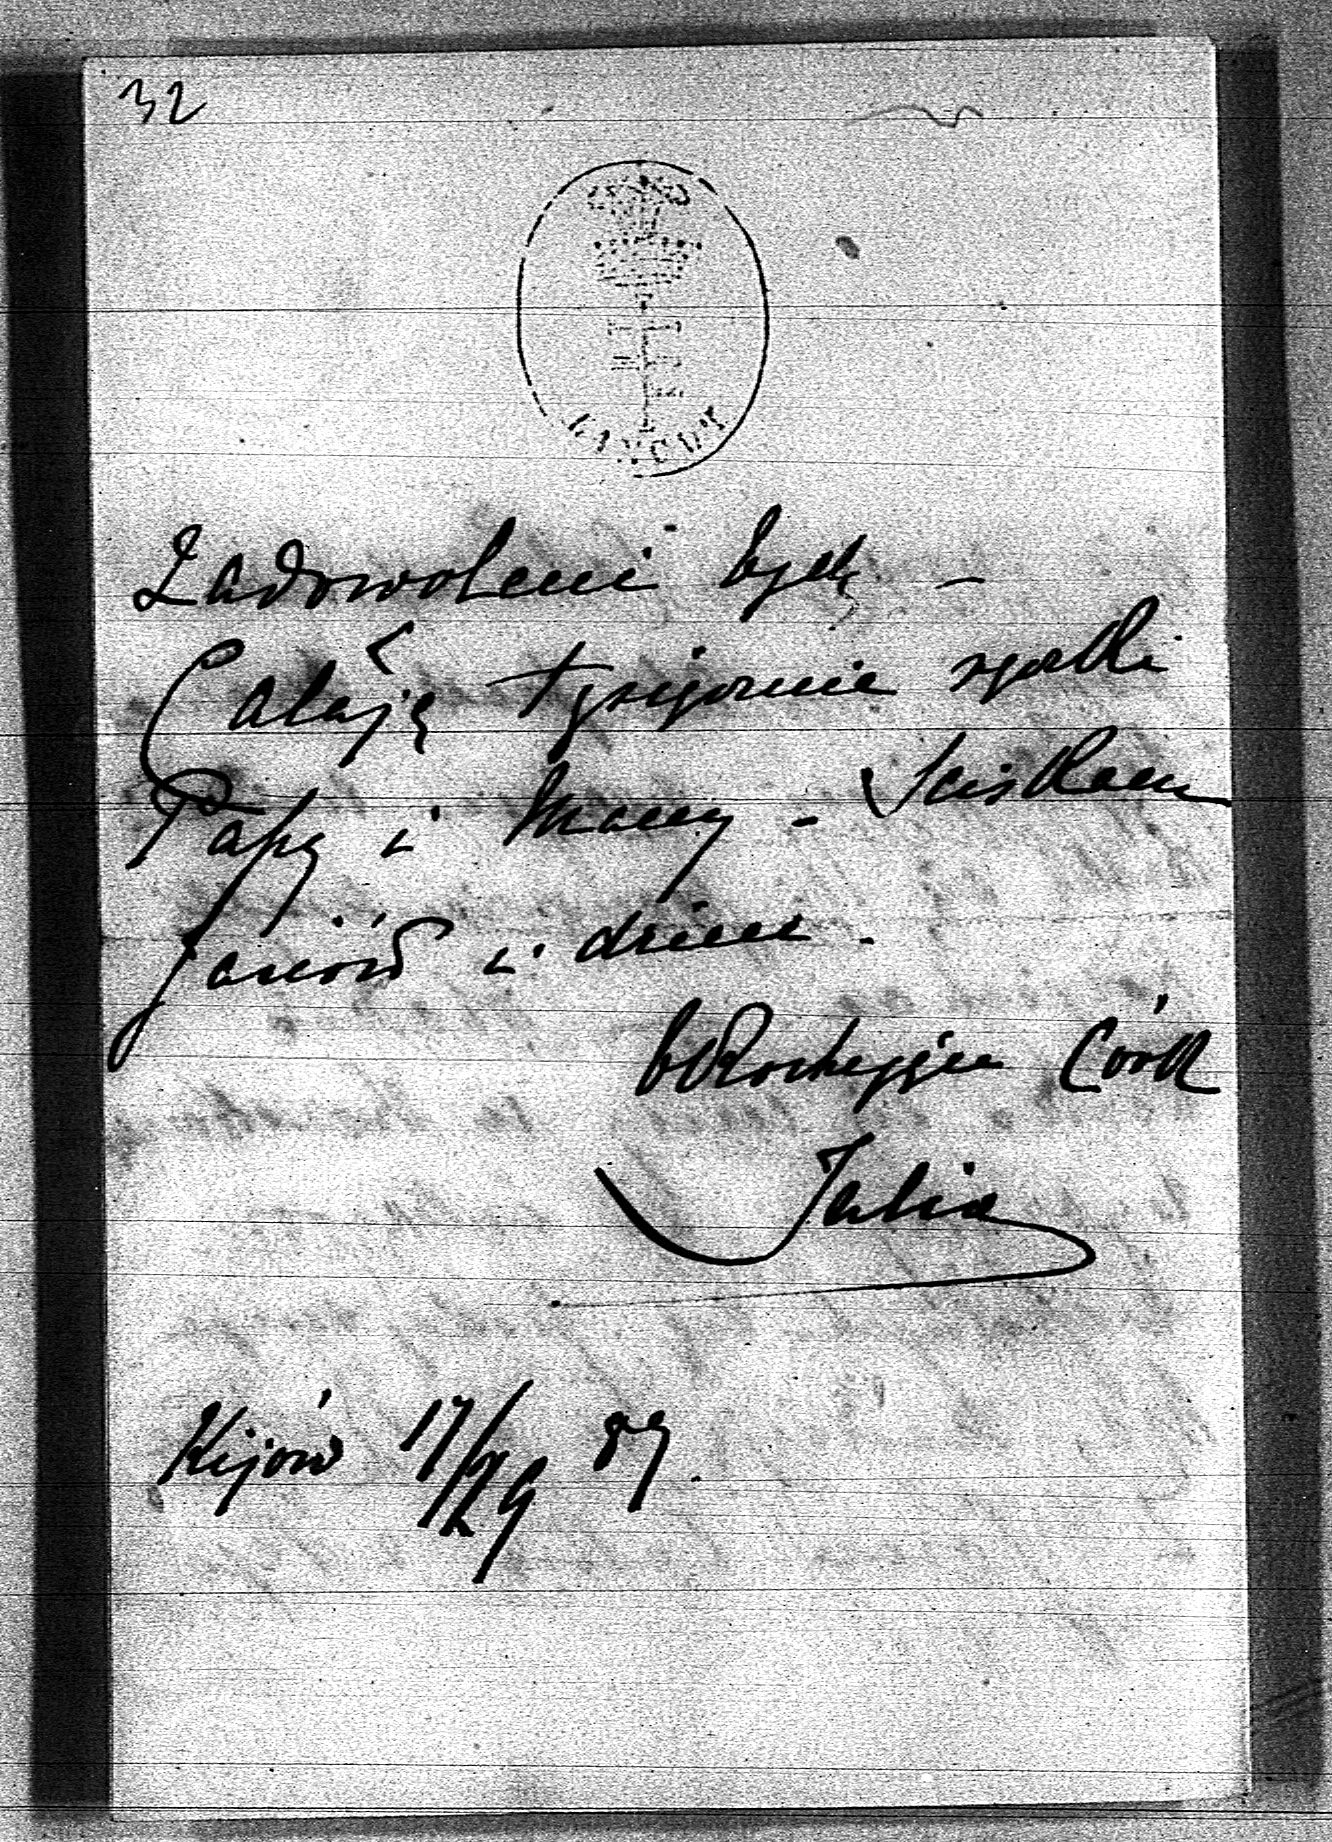 32
ŁAŃCUT
Zadowoleni będą –
Całuję tysiącznie rączki
Papy i Mamy – Ściskam
Jasiów i dzieci.
Córka
Julia
Kijów 17/29 89.